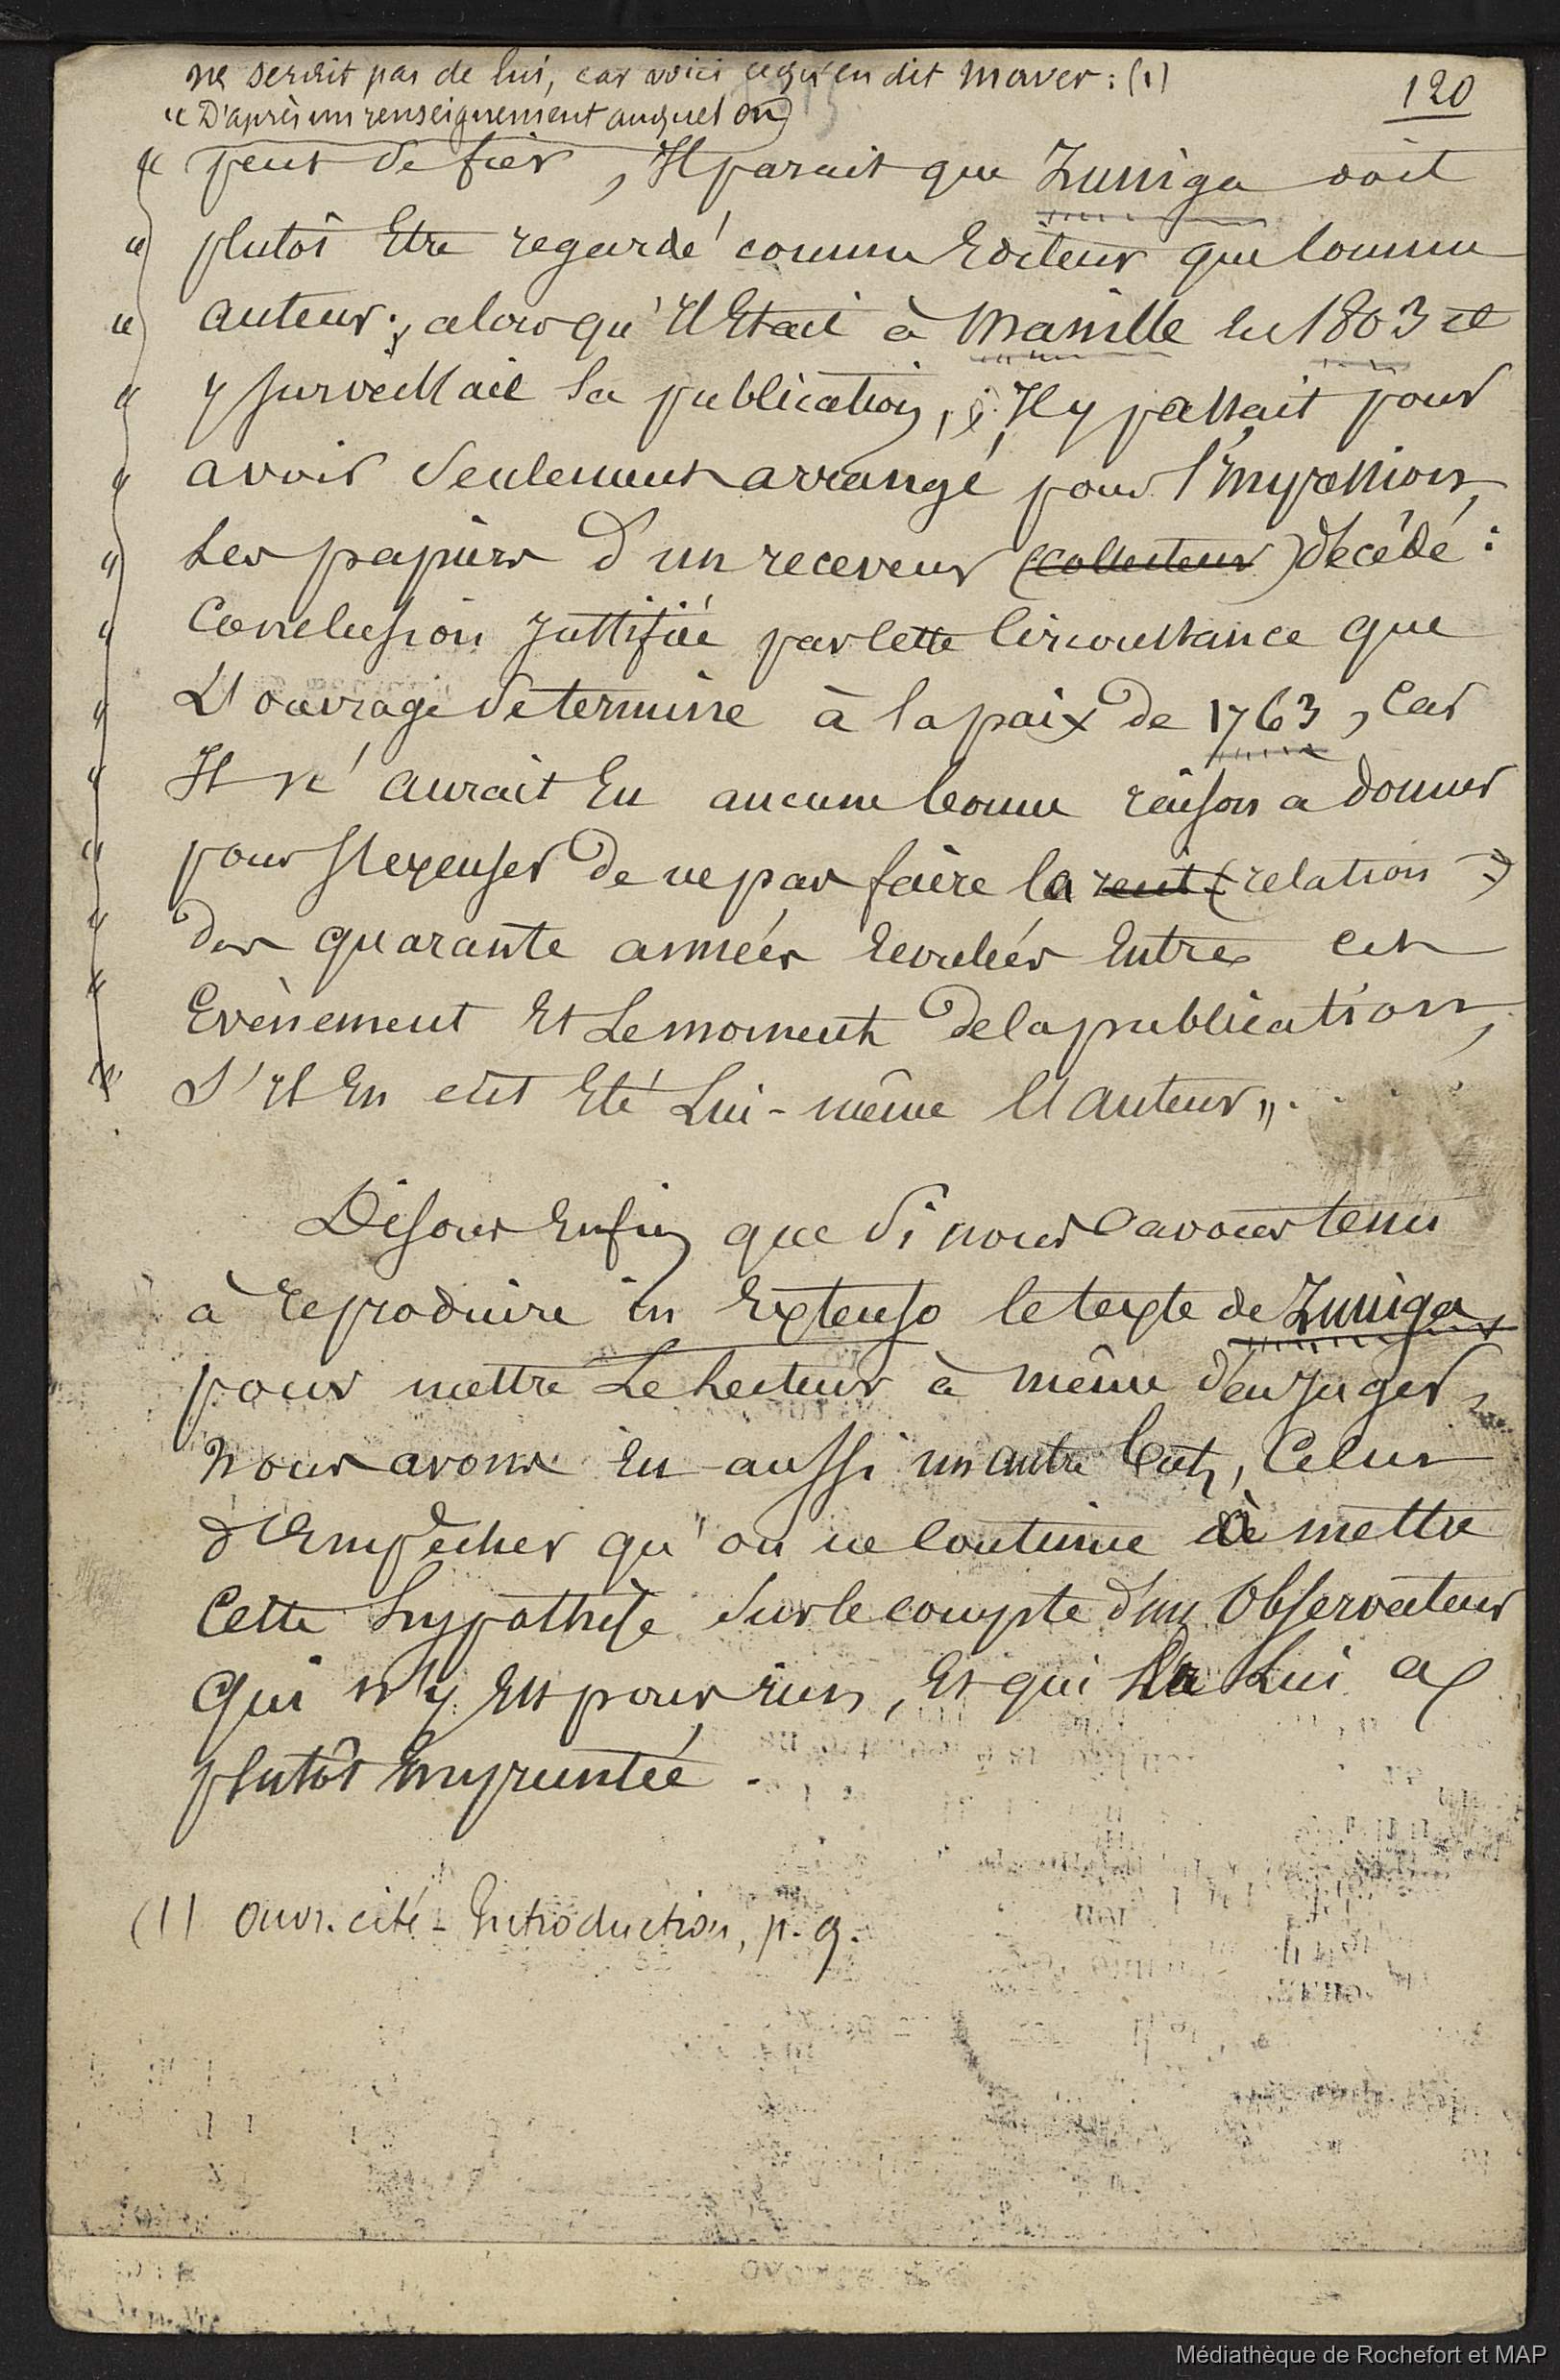 120
ne serait pas de lui, car voici ce qu'en dit Maver : (1)
« D'après un renseignement auquel on
« peut se fier, Il parait que Zuniga doit
« plutôt Etre regardé comme Editeur que comme
« auteur ; alors qu'Il Etait à Manille en 1803 et
« y surveillait sa publication, Il y passait pour
« avoir seulement arrangé pour l'Impression,
« Les papiers d'un receveur (collecteur) décédé :
« Conclusion Justifiée par cette Circonstance que
« L'ouvrage se termine à la paix de 1763, Car
« Il n'aurait Eu aucune bonne raison a donner
« pour s'excuser de ne pas faire la recit (relation)
« des quarante années Ecoulées Entre cet
« Evènement Et Le moment de la publication,
« S'Il En eût Eté Lui-même l'auteur ».
Disons Enfin que si nous avons tenu
à reproduire in Extenso le texte de Zuniga
pour mettre Le Lecteur à même d'en Juger,
Nous avons Eu aussi un autre but, Celui
d'Empêcher qu'on ne continue à mettre
Cette hypothèse sur le compte d'un Observateur
Qui n'y Est pour rien, Et qui La Lui a
plutôt Empruntée.
(1) Ouvr. cité - Introduction, p. 9.
Médiathèque de Rochefort et MAP